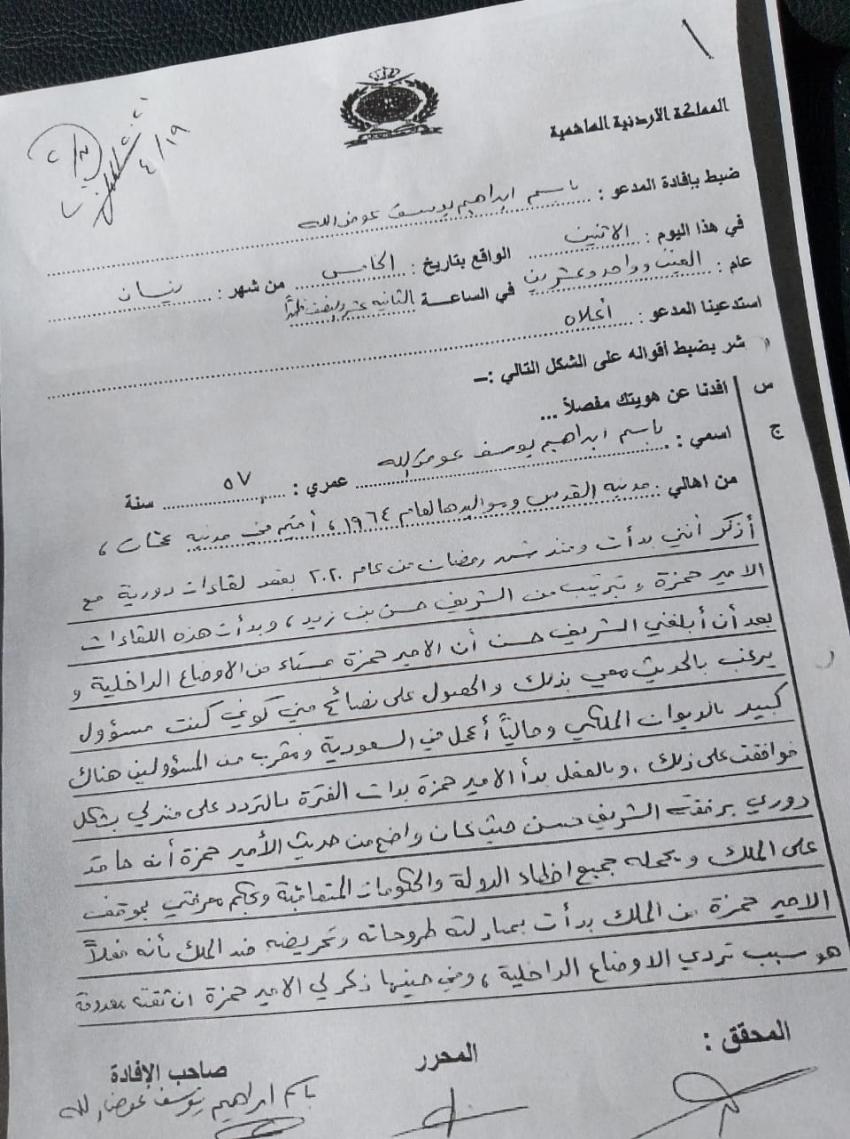 ١
المملكة الاردنية الهاشمية
٢٠٢١
٤/١٩
ضبط بإفادة المدعو : باسم ابراهيم يوسف عوض الله
في هذا اليوم : الاثنين الواقع بتاريخ : الخامس من شهر : نيسان
عام : الفين وواحد وعشرين في الساعة الثانية عشر والنصف ظهراً
استدعينا المدعو : أعلاه
شر بضبط أقواله على الشكل التالي :-
س افدنا عن هويتك مفصلاً ...
ج اسمي : باسم ابراهيم يوسف عوض الله عمري : ٥٧ سنة
من اهالي : مدينة القدس ومواليدها لعام ١٩٦٤ ، أقيم في مدينة عمان ،
أذكر أنني بدأت ومنذ شهر رمضان من عام ٢٠٢٠ بعقد لقاءات دورية مع
الامير حمزة وبترتيب من الشريف حسن بن زيد ، وبدأت هذه اللقاءات
بعد أن أبلغني الشريف حسن أن الامير حمزة مستاء من الاوضاع الداخلية و
يرغب بالحديث معي بذلك والحصول على نصائح مني كوني كنت مسؤول
كبير بالديوان الملكي وحالياً أعمل في السعودية ومقرب من المسؤولين هناك
فوافقت على ذلك ، وبالفعل بدأ الامير حمزة بذات الفترة بالتردد على منزلي بشكل
دوري برفقة الشريف حسن حيث كان واضح من حديث الأمير حمزة أنه حاقد
على الملك ويحمله جميع اخطاء الدولة والحكومات المتعاقبة وبحكم معرفتي بموقف
الامير حمزة من الملك بدأت بمبادلته طروحاته وتحريضه ضد الملك بأنه فعلاً
هو سبب تردي الاوضاع الداخلية ، وفي حينها ذكر لي الامير حمزة ان ثقته معدومة
المحقق : المحرر صاحب الإفادة
باسم ابراهيم يوسف عوض الله